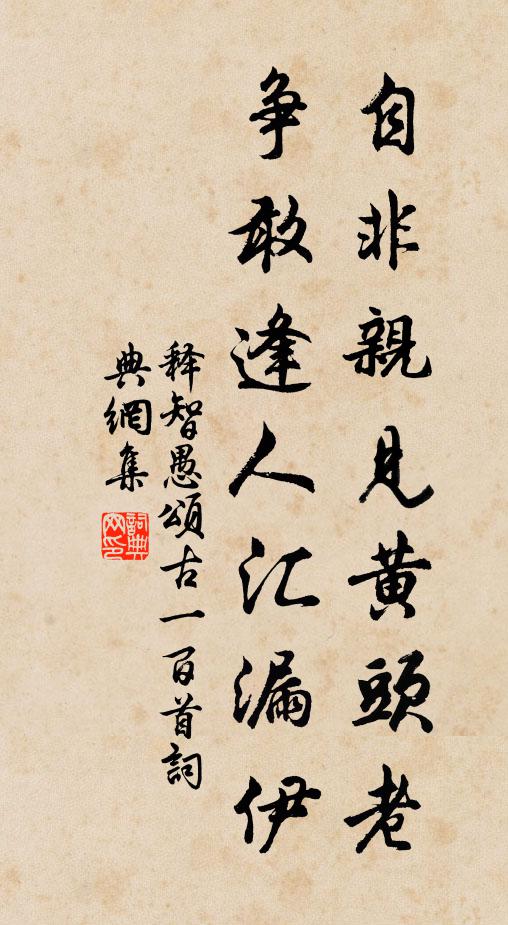 自非親見黄頭老
争敢逢人汇漏伊
释智愚頌古一百首詞
典網集
詞典
网印